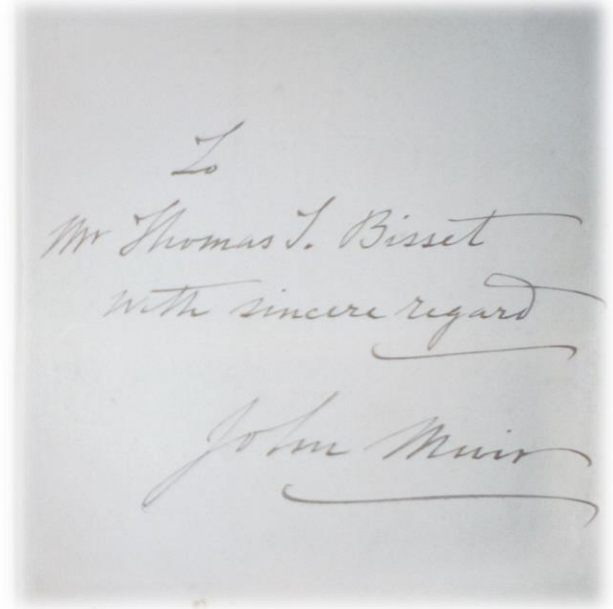 To
Mr Thomas T. Bisset
with sincere regard
John Muir